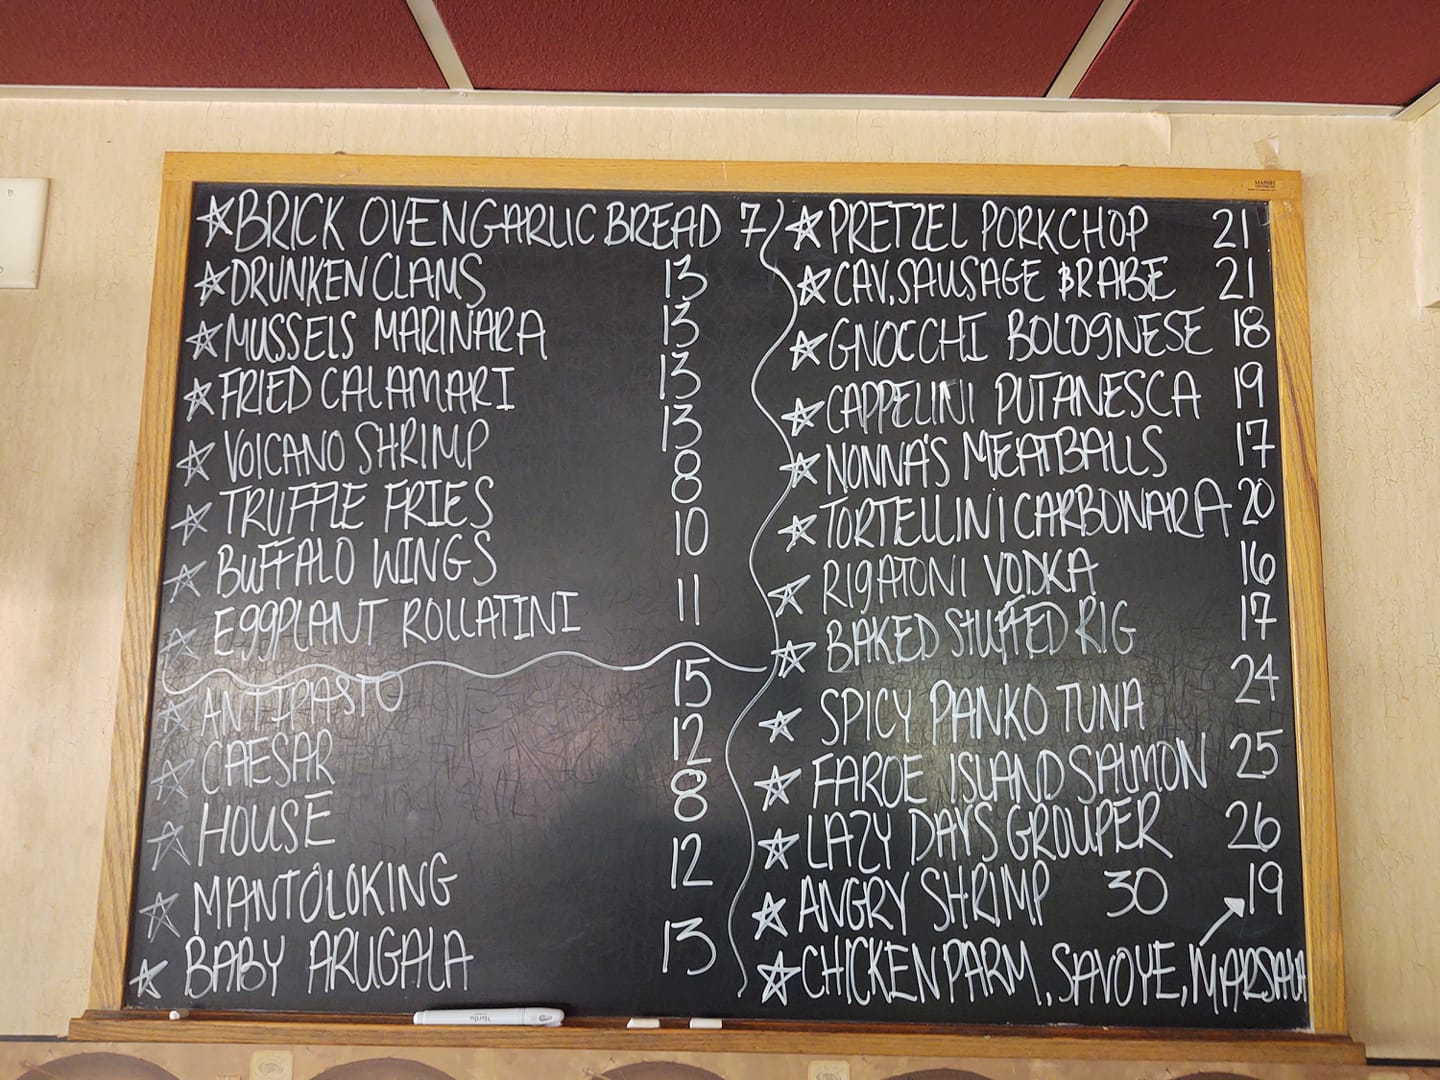 ☆ BRICK OVEN GARLIC BREAD 7
☆ DRUNKEN CLAMS 13
☆ MUSSELS MARINARA 13
☆ FRIED CALAMARI 13
☆ VOLCANO SHRIMP 13
☆ TRUFFLE FRIES 8
☆ BUFFALO WINGS 10
☆ EGGPLANT ROLLATINI 11
☆ ANTIPASTO 15
☆ CAESAR 12
☆ HOUSE 8
☆ MANTOLOKING 12
☆ BABY ARUGALA 13
☆ PRETZEL PORKCHOP 21
☆ CAV, SAUSAGE & RABE 21
☆ GNOCCHI BOLOGNESE 18
☆ CAPPELINI PUTANESCA 19
☆ NONNA'S MEATBALLS 17
☆ TORTELLINI CARBONARA 20
☆ RIGATONI VODKA 16
☆ BAKED STUFFED RIG 17
☆ SPICY PANKO TUNA 24
☆ FAROE ISLAND SALMON 25
☆ LAZY DAYS GROUPER 26
☆ ANGRY SHRIMP 30
☆ CHICKEN PARM, SAVOYE, MARSALA 19